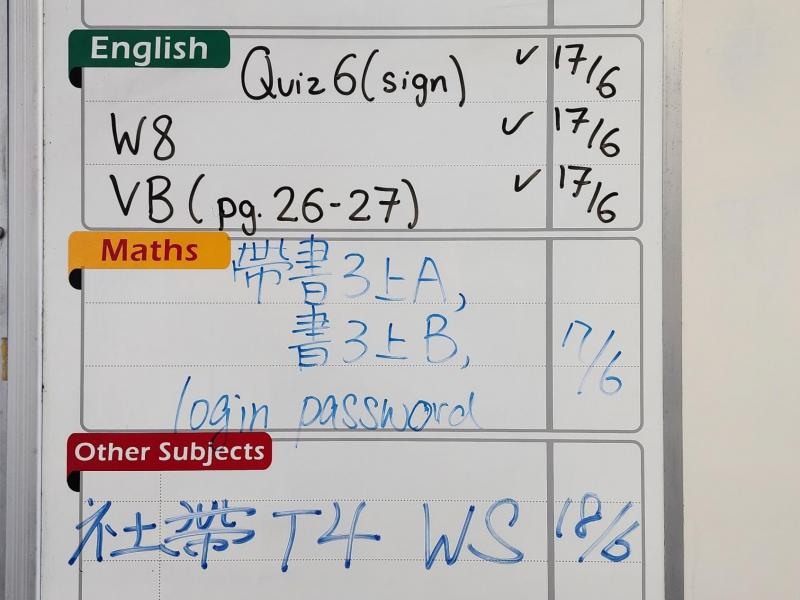 English
Quiz 6 (sign) ✓ 17/6
W8 ✓ 17/6
VB (pg. 26-27) ✓ 17/6
Maths
帶書3上A,
書3上B, 17/6
login password
Other Subjects
社帶 T4 WS 18/6